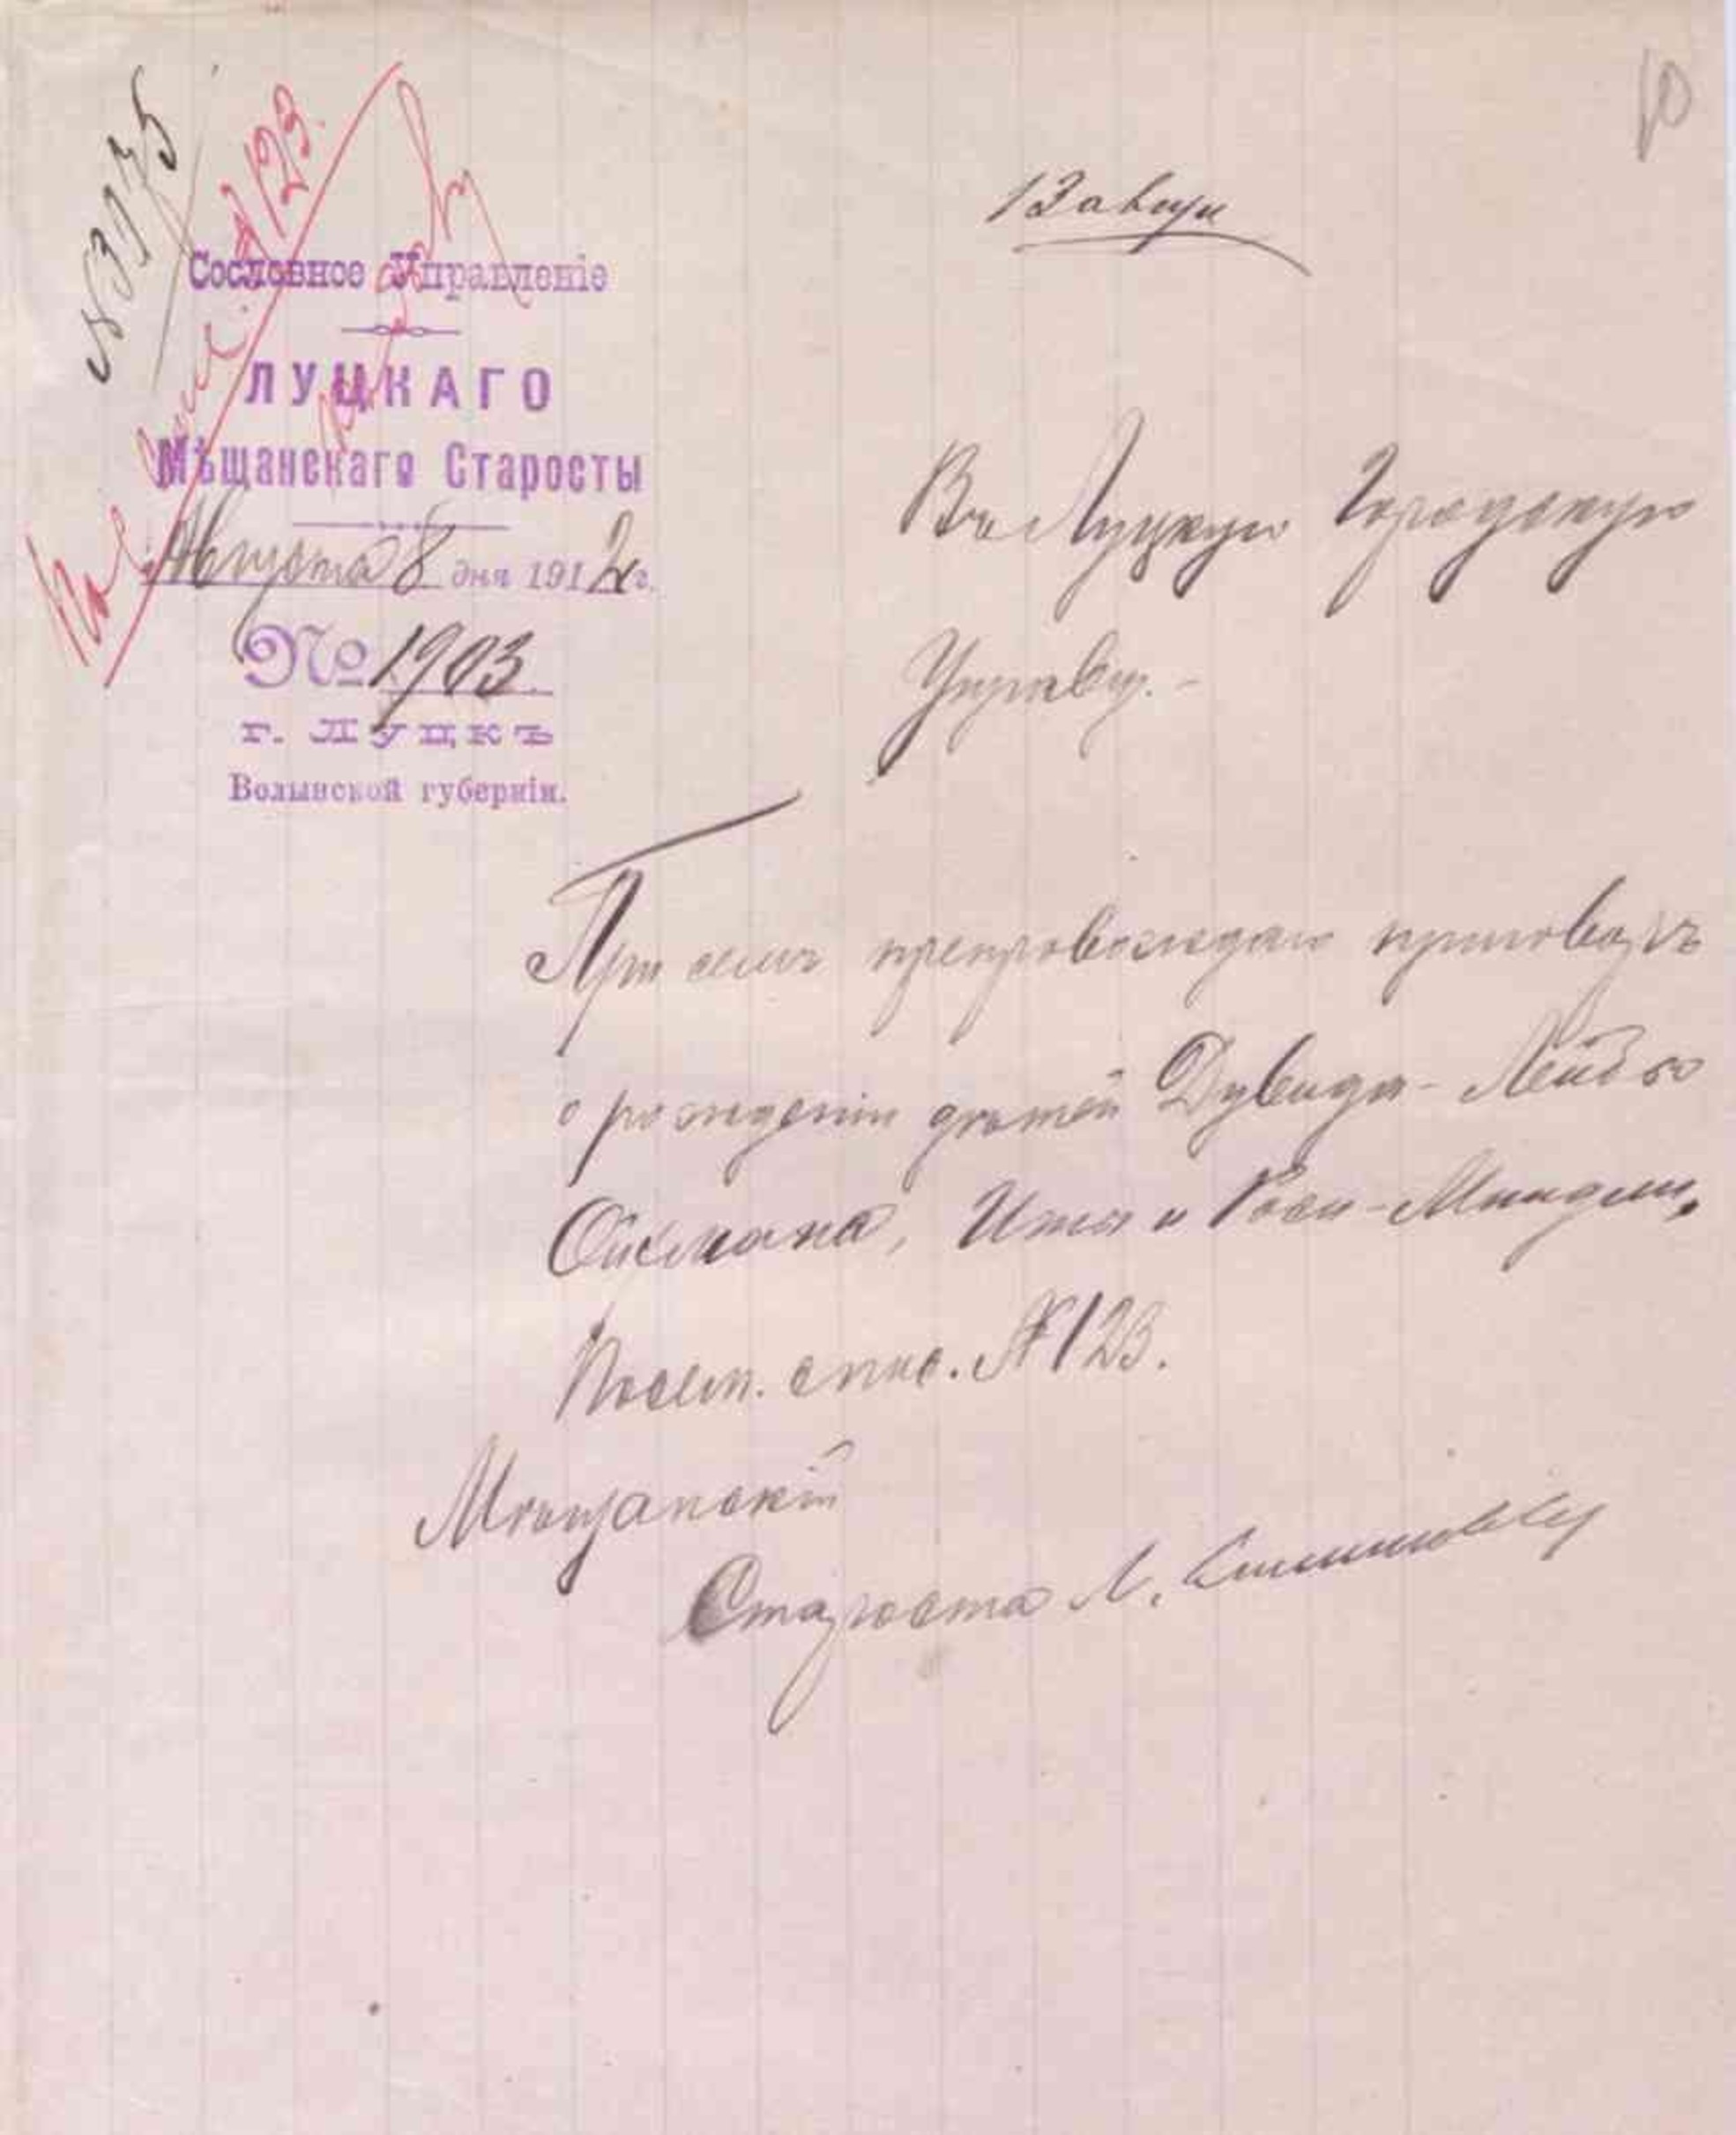 10
№ 3175
13 авгу
Сословное Управленіе
ЛУЦКАГО
Мѣщанскаго Старосты
Августа 8 дня 1912 г.
№ 1903
г. ЛУЦКЪ
Волынской губерніи.
По № 123.
Въ Луцкую Городскую
Управу. -
При семъ препровождаю приговоръ
о рожденіи дѣтей Дувида-Лейбы
Ойхмана, Иты и Рози-Миндли,
Посем. спис. № 123.
Мѣщанскій
Староста Л.